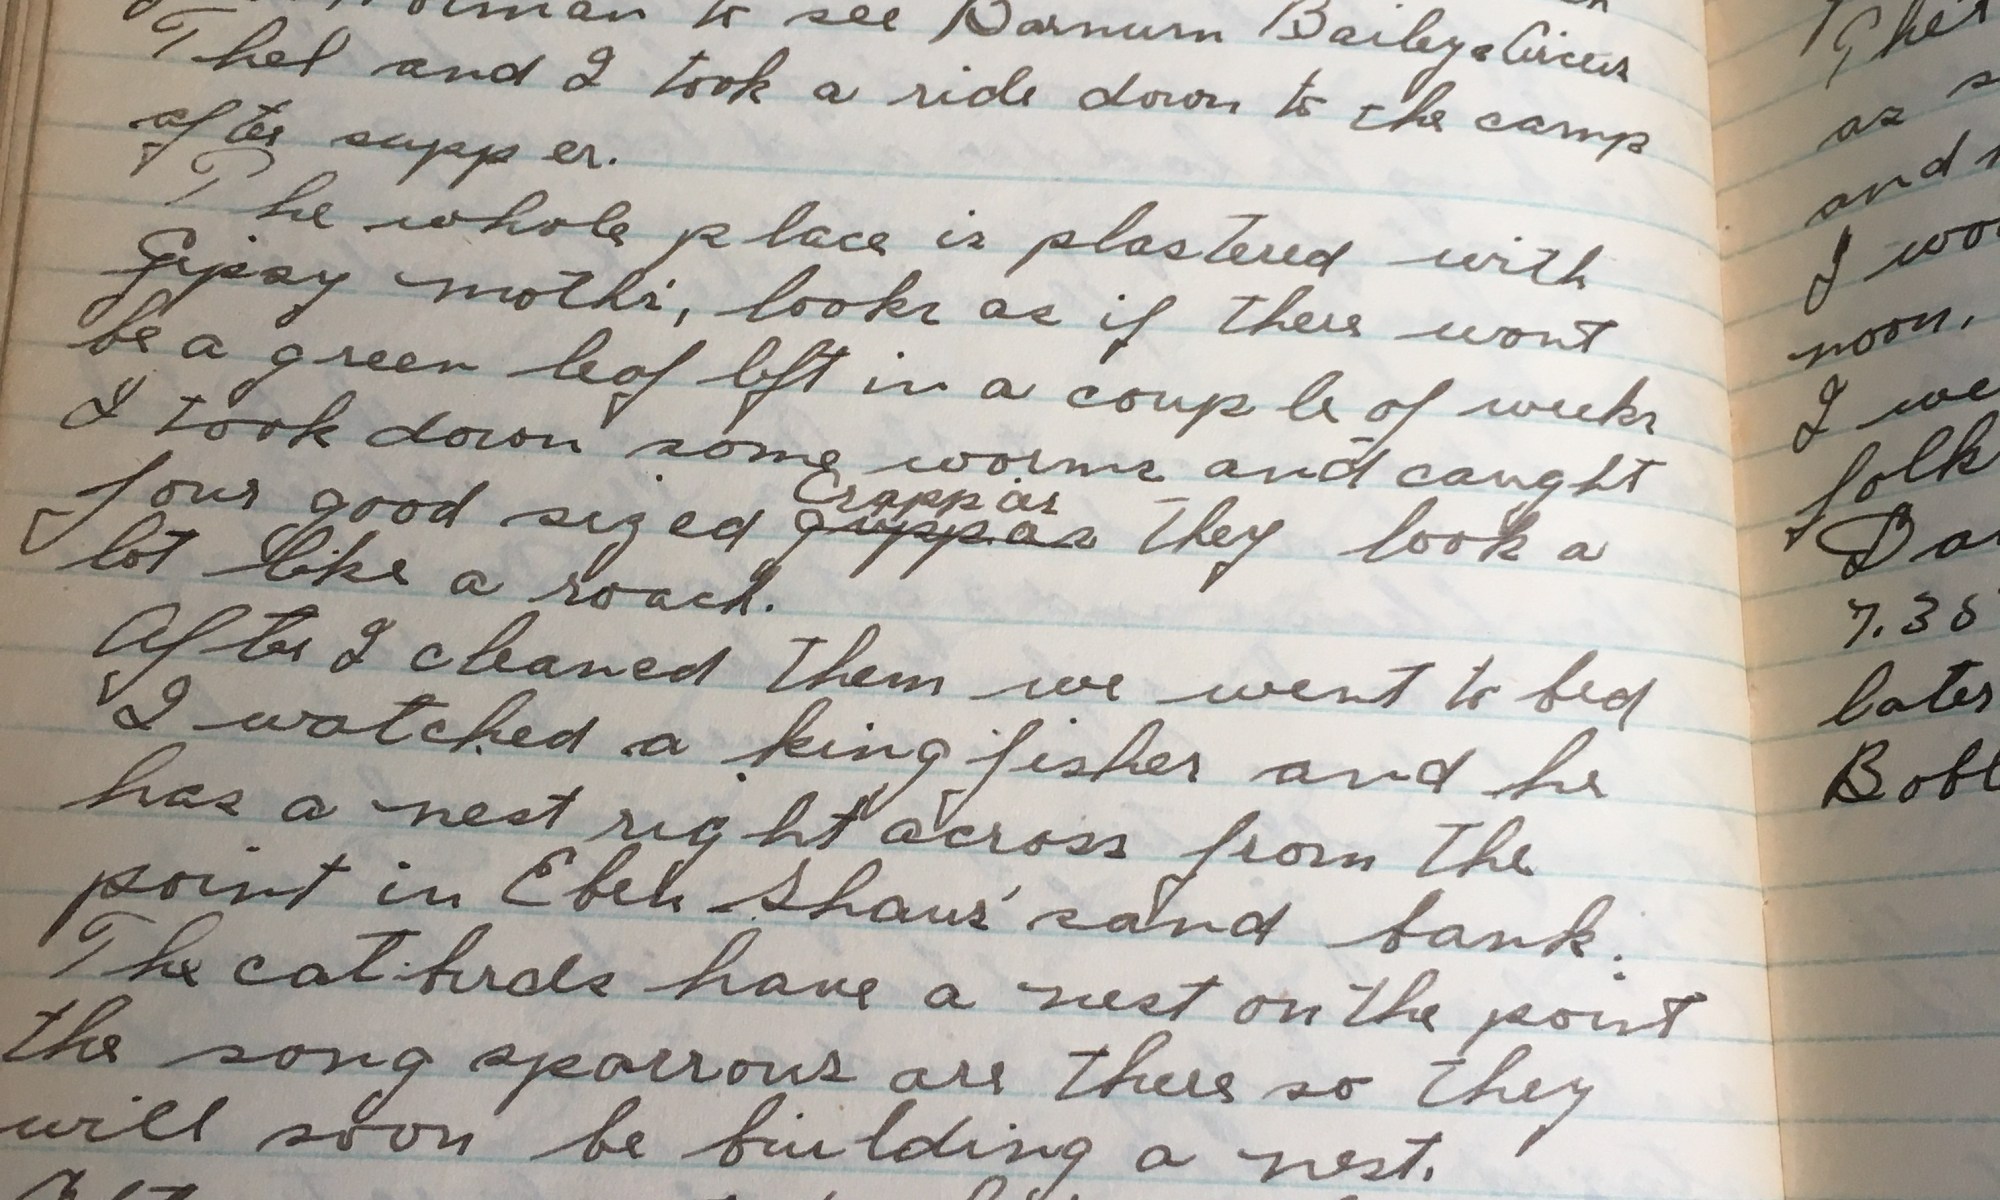 to see Barnum Bailey Circus
Thel and I took a ride down to the camp
after supper.
The whole place is plastered with
Gipsy moths, looks as if there wont
be a green leaf left in a couple of weeks
I took down some worms and caught
Crappies
four good sized guppas they look a
lot like a roach.
After I cleaned them we went to bed
I watched a king fisher and he
has a nest right across from the
point in Eben Shaws' sand bank.
The cat-birds have a nest on the point
the song sparrows are there so they
will soon be building a nest.
as
and
I
noon.
I
folk
7.30
later